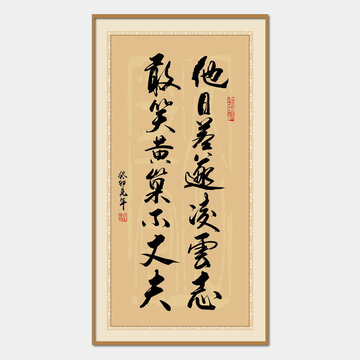 他日若遂凌雲志
敢笑黄巢不丈夫
癸卯年